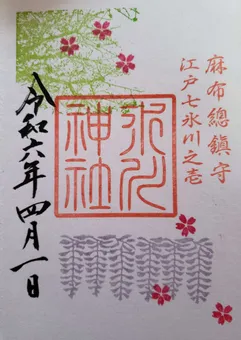 麻布總鎮守
江戸七氷川之壱
氷川
神社
令和六年四月一日